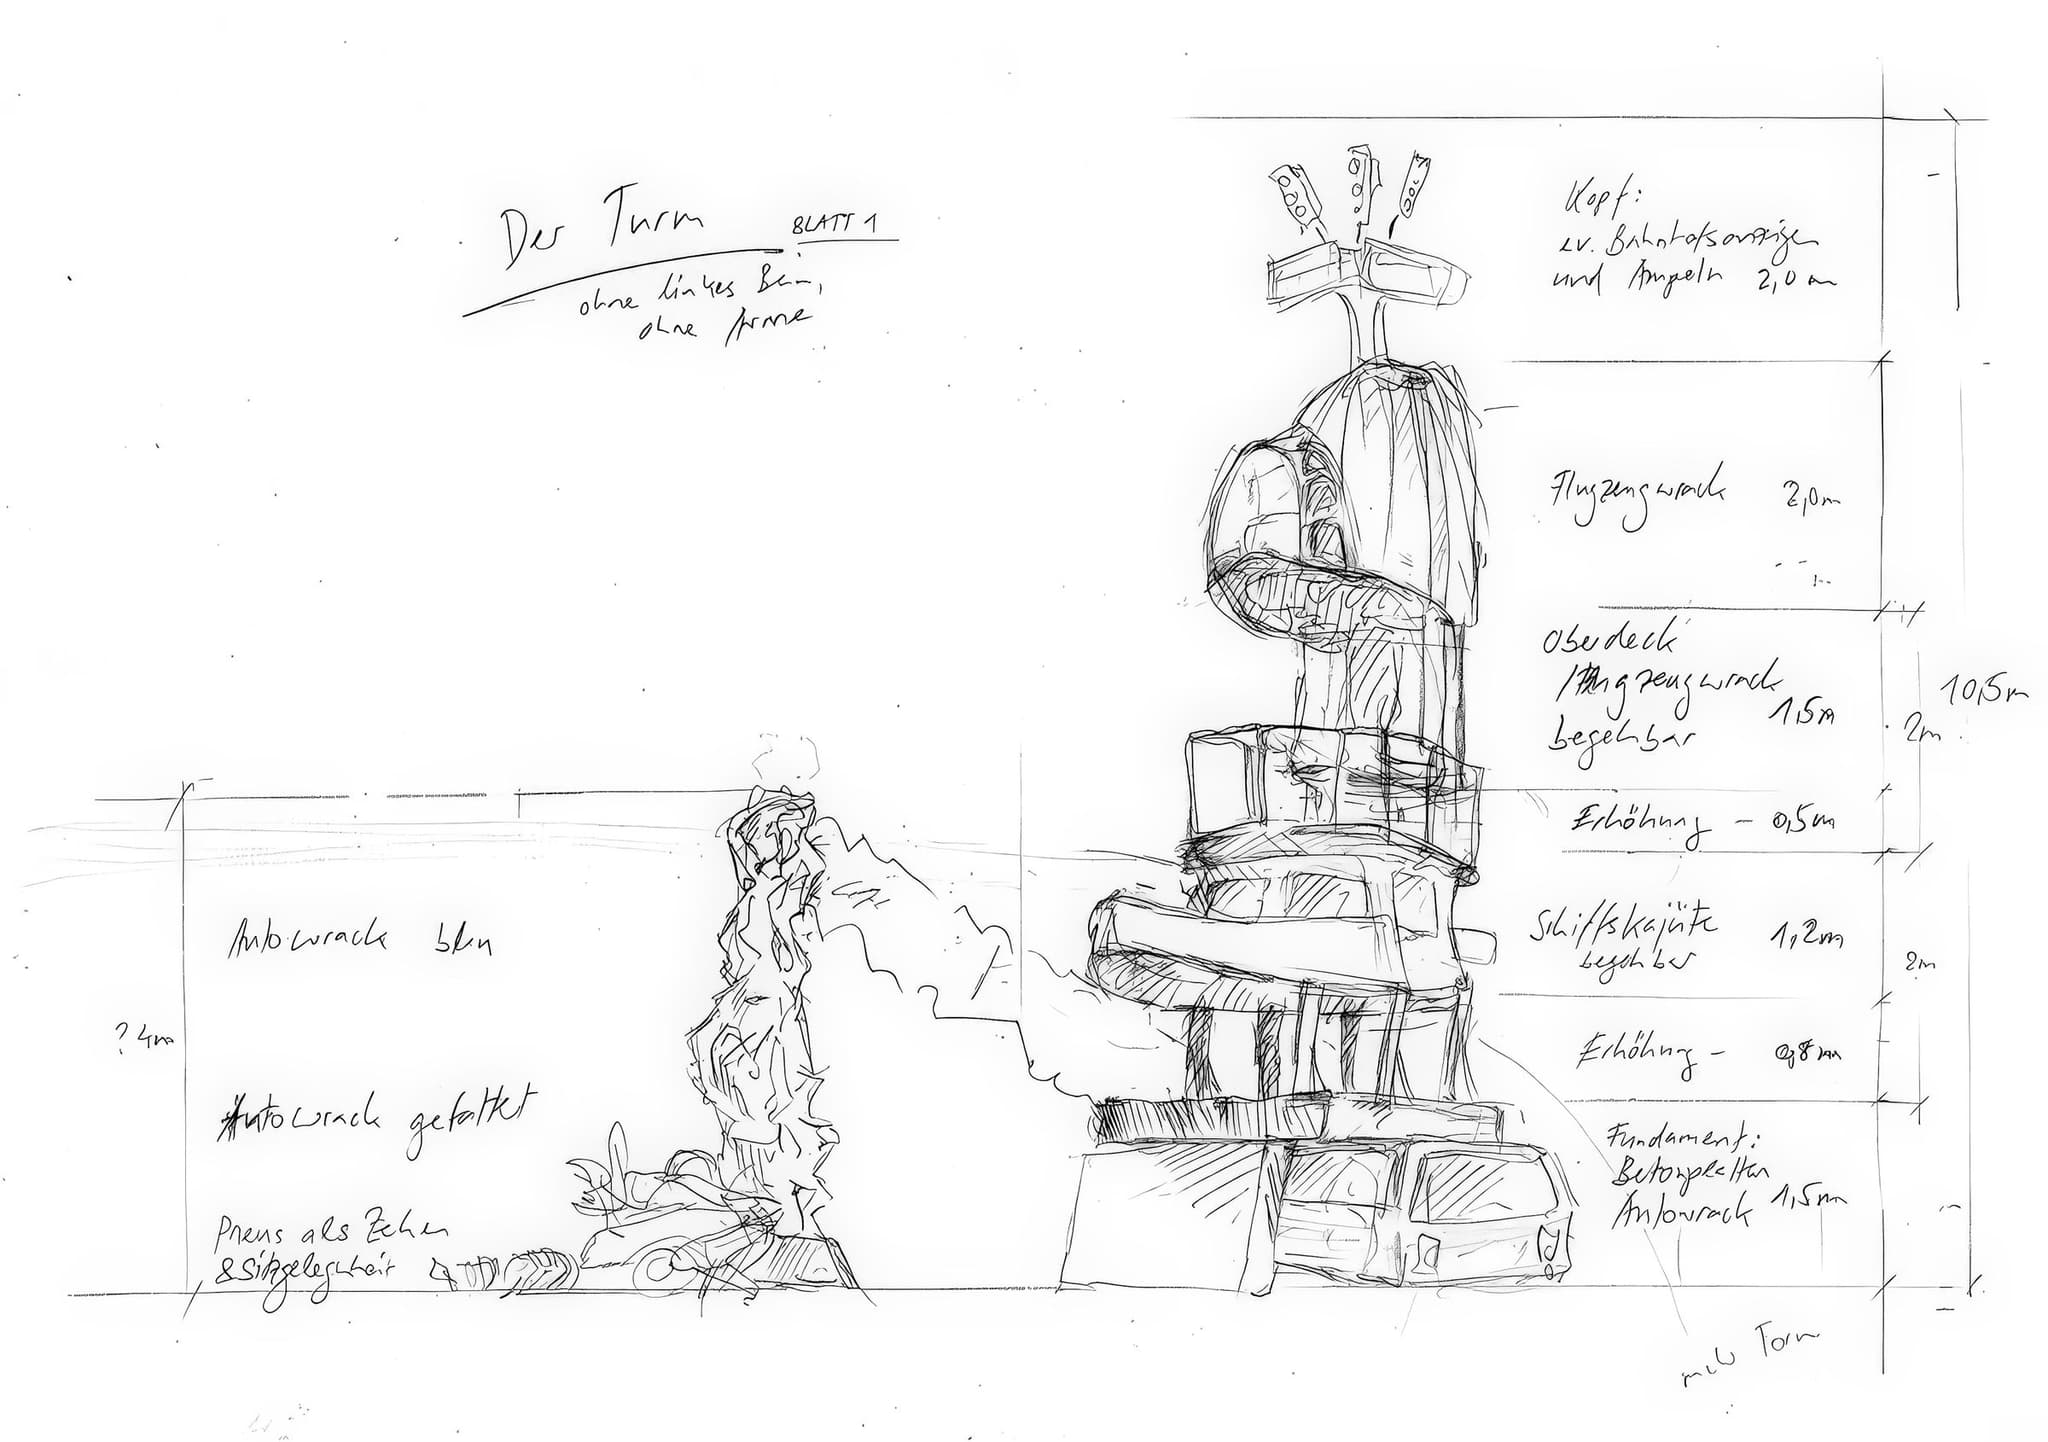 Der Turm BLATT 1
ohne linkes Bein,
ohne Arme
Kopf:
ev. Bahnhofsanzeigen
und Ampeln 2,0 m
Flugzeugwrack 2,0m
Oberdeck
/Flugzeugwrack
begehbar 1,5m
2m
10,5m
Erhöhung – 0,5m
Schiffskajüte 1,2m
begehbar
2m
Erhöhung – 0,8m
Fundament:
Betonplatten
Autowrack 1,5m
Autowrack
? 4m
Autowrack gefaltet
Pneus als Zehen
& Sitzgelegenheit